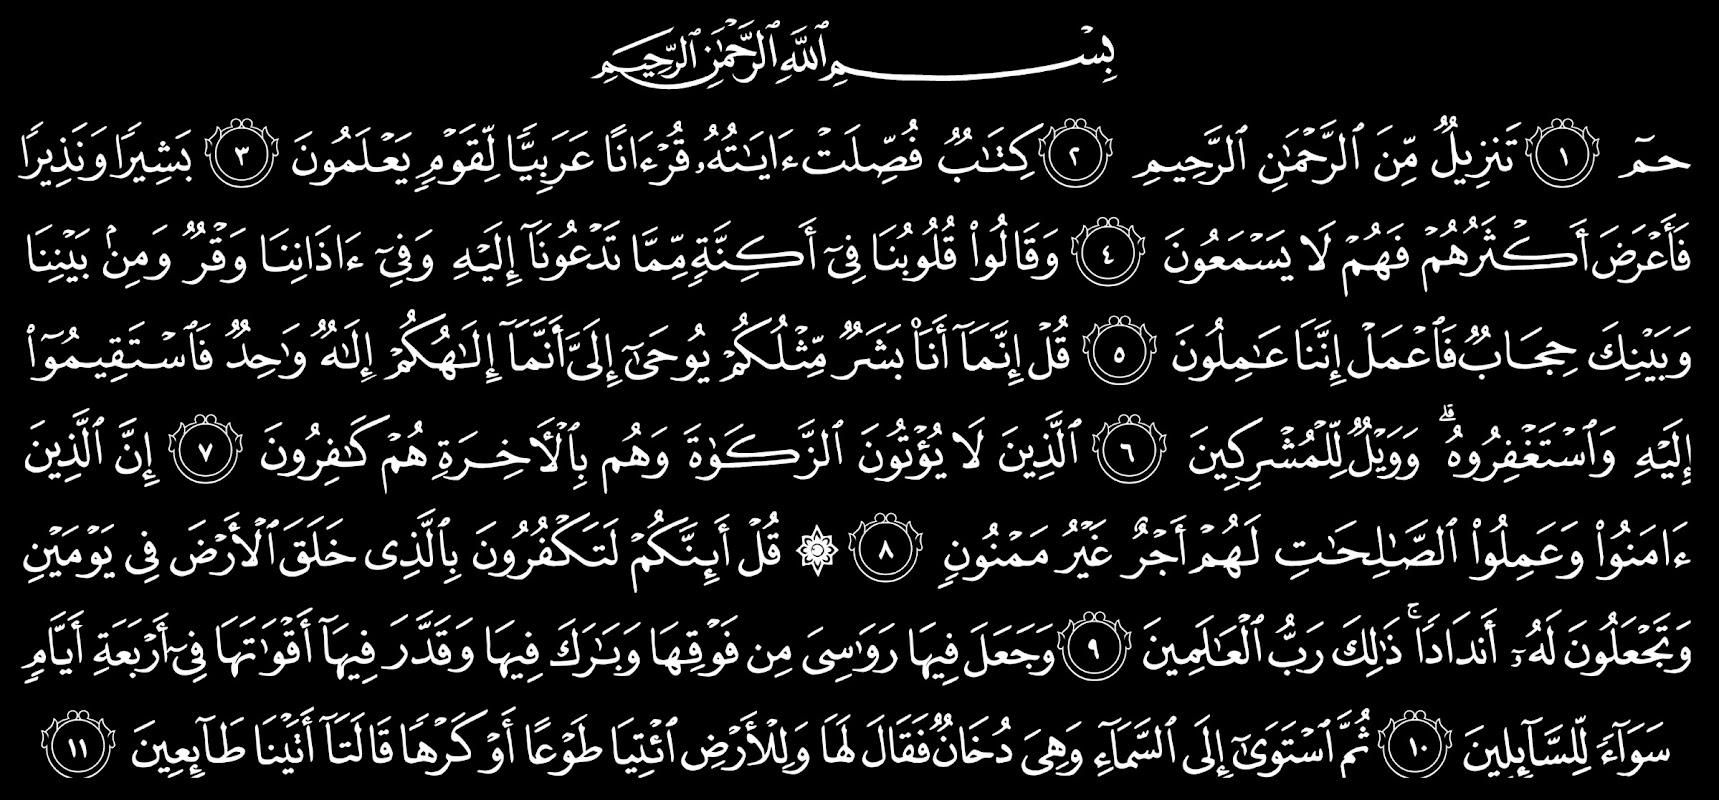 بِسْمِ ٱللَّهِ ٱلرَّحْمَٰنِ ٱلرَّحِيمِ
حمٓ ١ تَنزِيلٌ مِّنَ ٱلرَّحْمَٰنِ ٱلرَّحِيمِ ٢ كِتَٰبٌ فُصِّلَتْ ءَايَٰتُهُۥ قُرْءَانًا عَرَبِيًّا لِّقَوْمٍ يَعْلَمُونَ ٣ بَشِيرًا وَنَذِيرًا
فَأَعْرَضَ أَكْثَرُهُمْ فَهُمْ لَا يَسْمَعُونَ ٤ وَقَالُوا۟ قُلُوبُنَا فِىٓ أَكِنَّةٍ مِّمَّا تَدْعُونَآ إِلَيْهِ وَفِىٓ ءَاذَانِنَا وَقْرٌ وَمِنۢ بَيْنِنَا
وَبَيْنِكَ حِجَابٌ فَٱعْمَلْ إِنَّنَا عَٰمِلُونَ ٥ قُلْ إِنَّمَآ أَنَا۠ بَشَرٌ مِّثْلُكُمْ يُوحَىٰٓ إِلَىَّ أَنَّمَآ إِلَٰهُكُمْ إِلَٰهٌ وَٰحِدٌ فَٱسْتَقِيمُوٓا۟
إِلَيْهِ وَٱسْتَغْفِرُوهُ ۗ وَوَيْلٌ لِّلْمُشْرِكِينَ ٦ ٱلَّذِينَ لَا يُؤْتُونَ ٱلزَّكَوٰةَ وَهُم بِٱلْءَاخِرَةِ هُمْ كَٰفِرُونَ ٧ إِنَّ ٱلَّذِينَ
ءَامَنُوا۟ وَعَمِلُوا۟ ٱلصَّٰلِحَٰتِ لَهُمْ أَجْرٌ غَيْرُ مَمْنُونٍ ٨ ۞ قُلْ أَئِنَّكُمْ لَتَكْفُرُونَ بِٱلَّذِى خَلَقَ ٱلْأَرْضَ فِى يَوْمَيْنِ
وَتَجْعَلُونَ لَهُۥٓ أَندَادًا ۚ ذَٰلِكَ رَبُّ ٱلْعَٰلَمِينَ ٩ وَجَعَلَ فِيهَا رَوَٰسِىَ مِن فَوْقِهَا وَبَٰرَكَ فِيهَا وَقَدَّرَ فِيهَآ أَقْوَٰتَهَا فِىٓ أَرْبَعَةِ أَيَّامٍ
سَوَآءً لِّلسَّآئِلِينَ ١٠ ثُمَّ ٱسْتَوَىٰٓ إِلَى ٱلسَّمَآءِ وَهِىَ دُخَانٌ فَقَالَ لَهَا وَلِلْأَرْضِ ٱئْتِيَا طَوْعًا أَوْ كَرْهًا قَالَتَآ أَتَيْنَا طَآئِعِينَ ١١